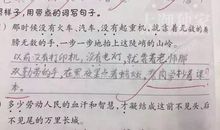 照样子，用带点的词写句子。
那时候没有火车、汽车，没有起重机，就靠着无数的肩
膀无数的手，一步一步地抬上这陡峭的山岭。
以前没有打印机，没有电灯，就靠着老师那
双勤劳的手，在黑夜里点着蜡烛，
本。
多少劳动人民的血汗和智慧，才凝结成这前不见头、后
不见尾的万里长城。